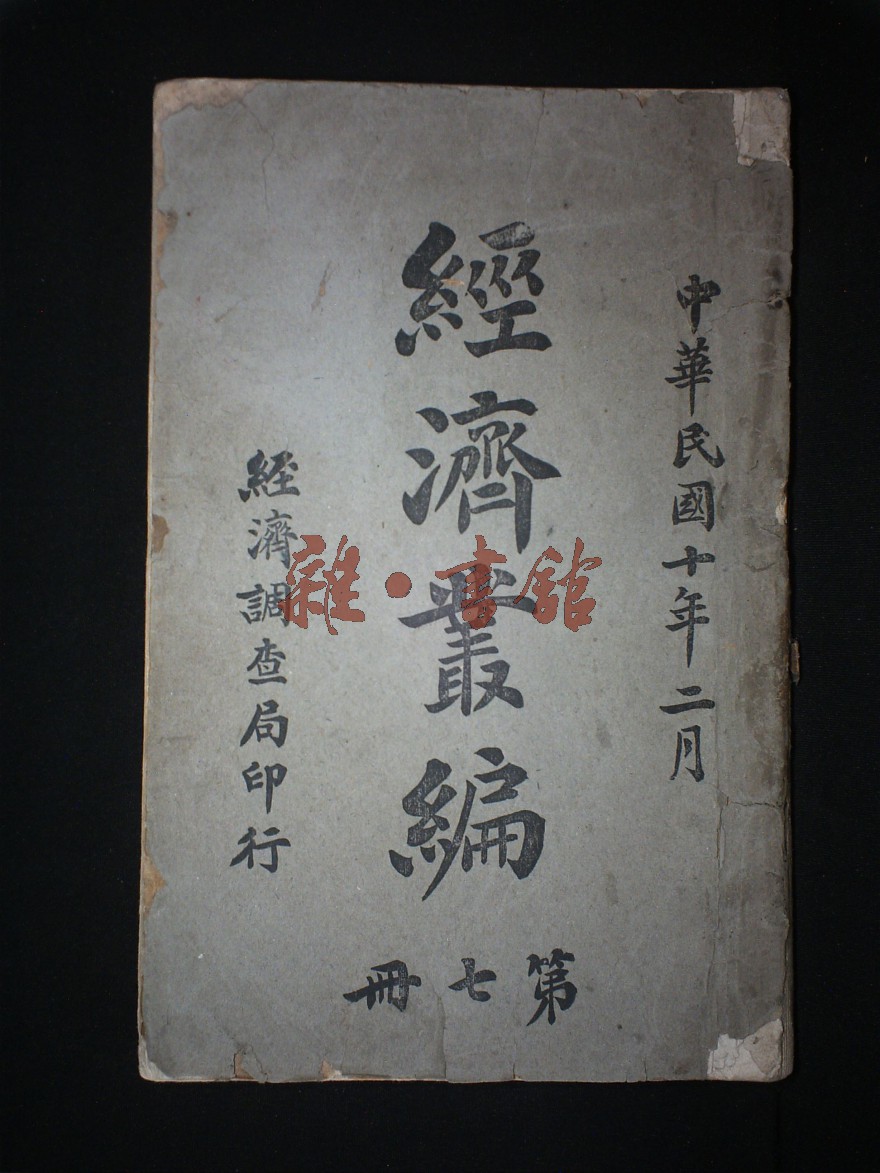 中華民國十年二月
經濟叢編
第七冊
經濟調查局印行
雜·書館